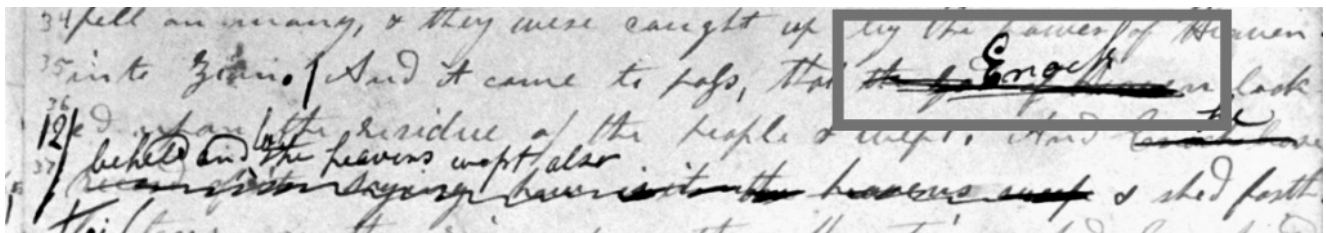 34 fell on many, & they were caught up by the power of Heaven
35 into Zion. And it came to pass, that the God of Heaven look
Enoch
36
12 ed upon the residue of the people & wept. And
the
behold and the heavens wept also
37 saying how is it the heavens weep & shed forth